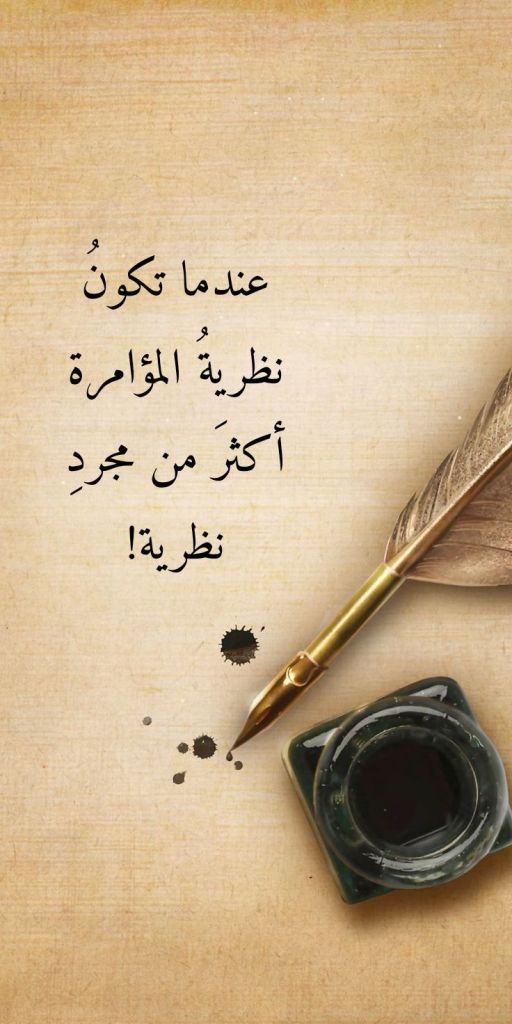 عندما تكونُ
نظريةُ المؤامرة
أكثرَ من مجردِ
نظرية!